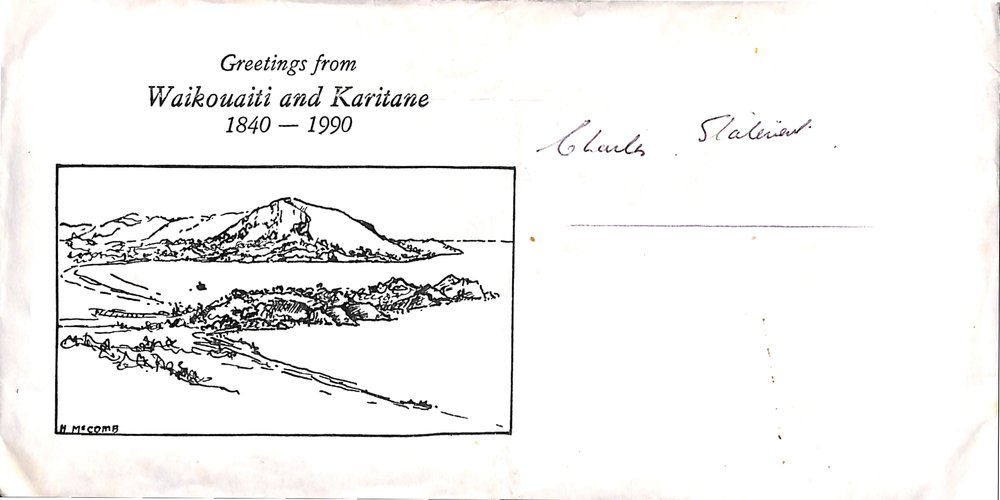 Greetings from
Waikouaiti and Karitane
1840 — 1990
Charles Statement
H McCOMB